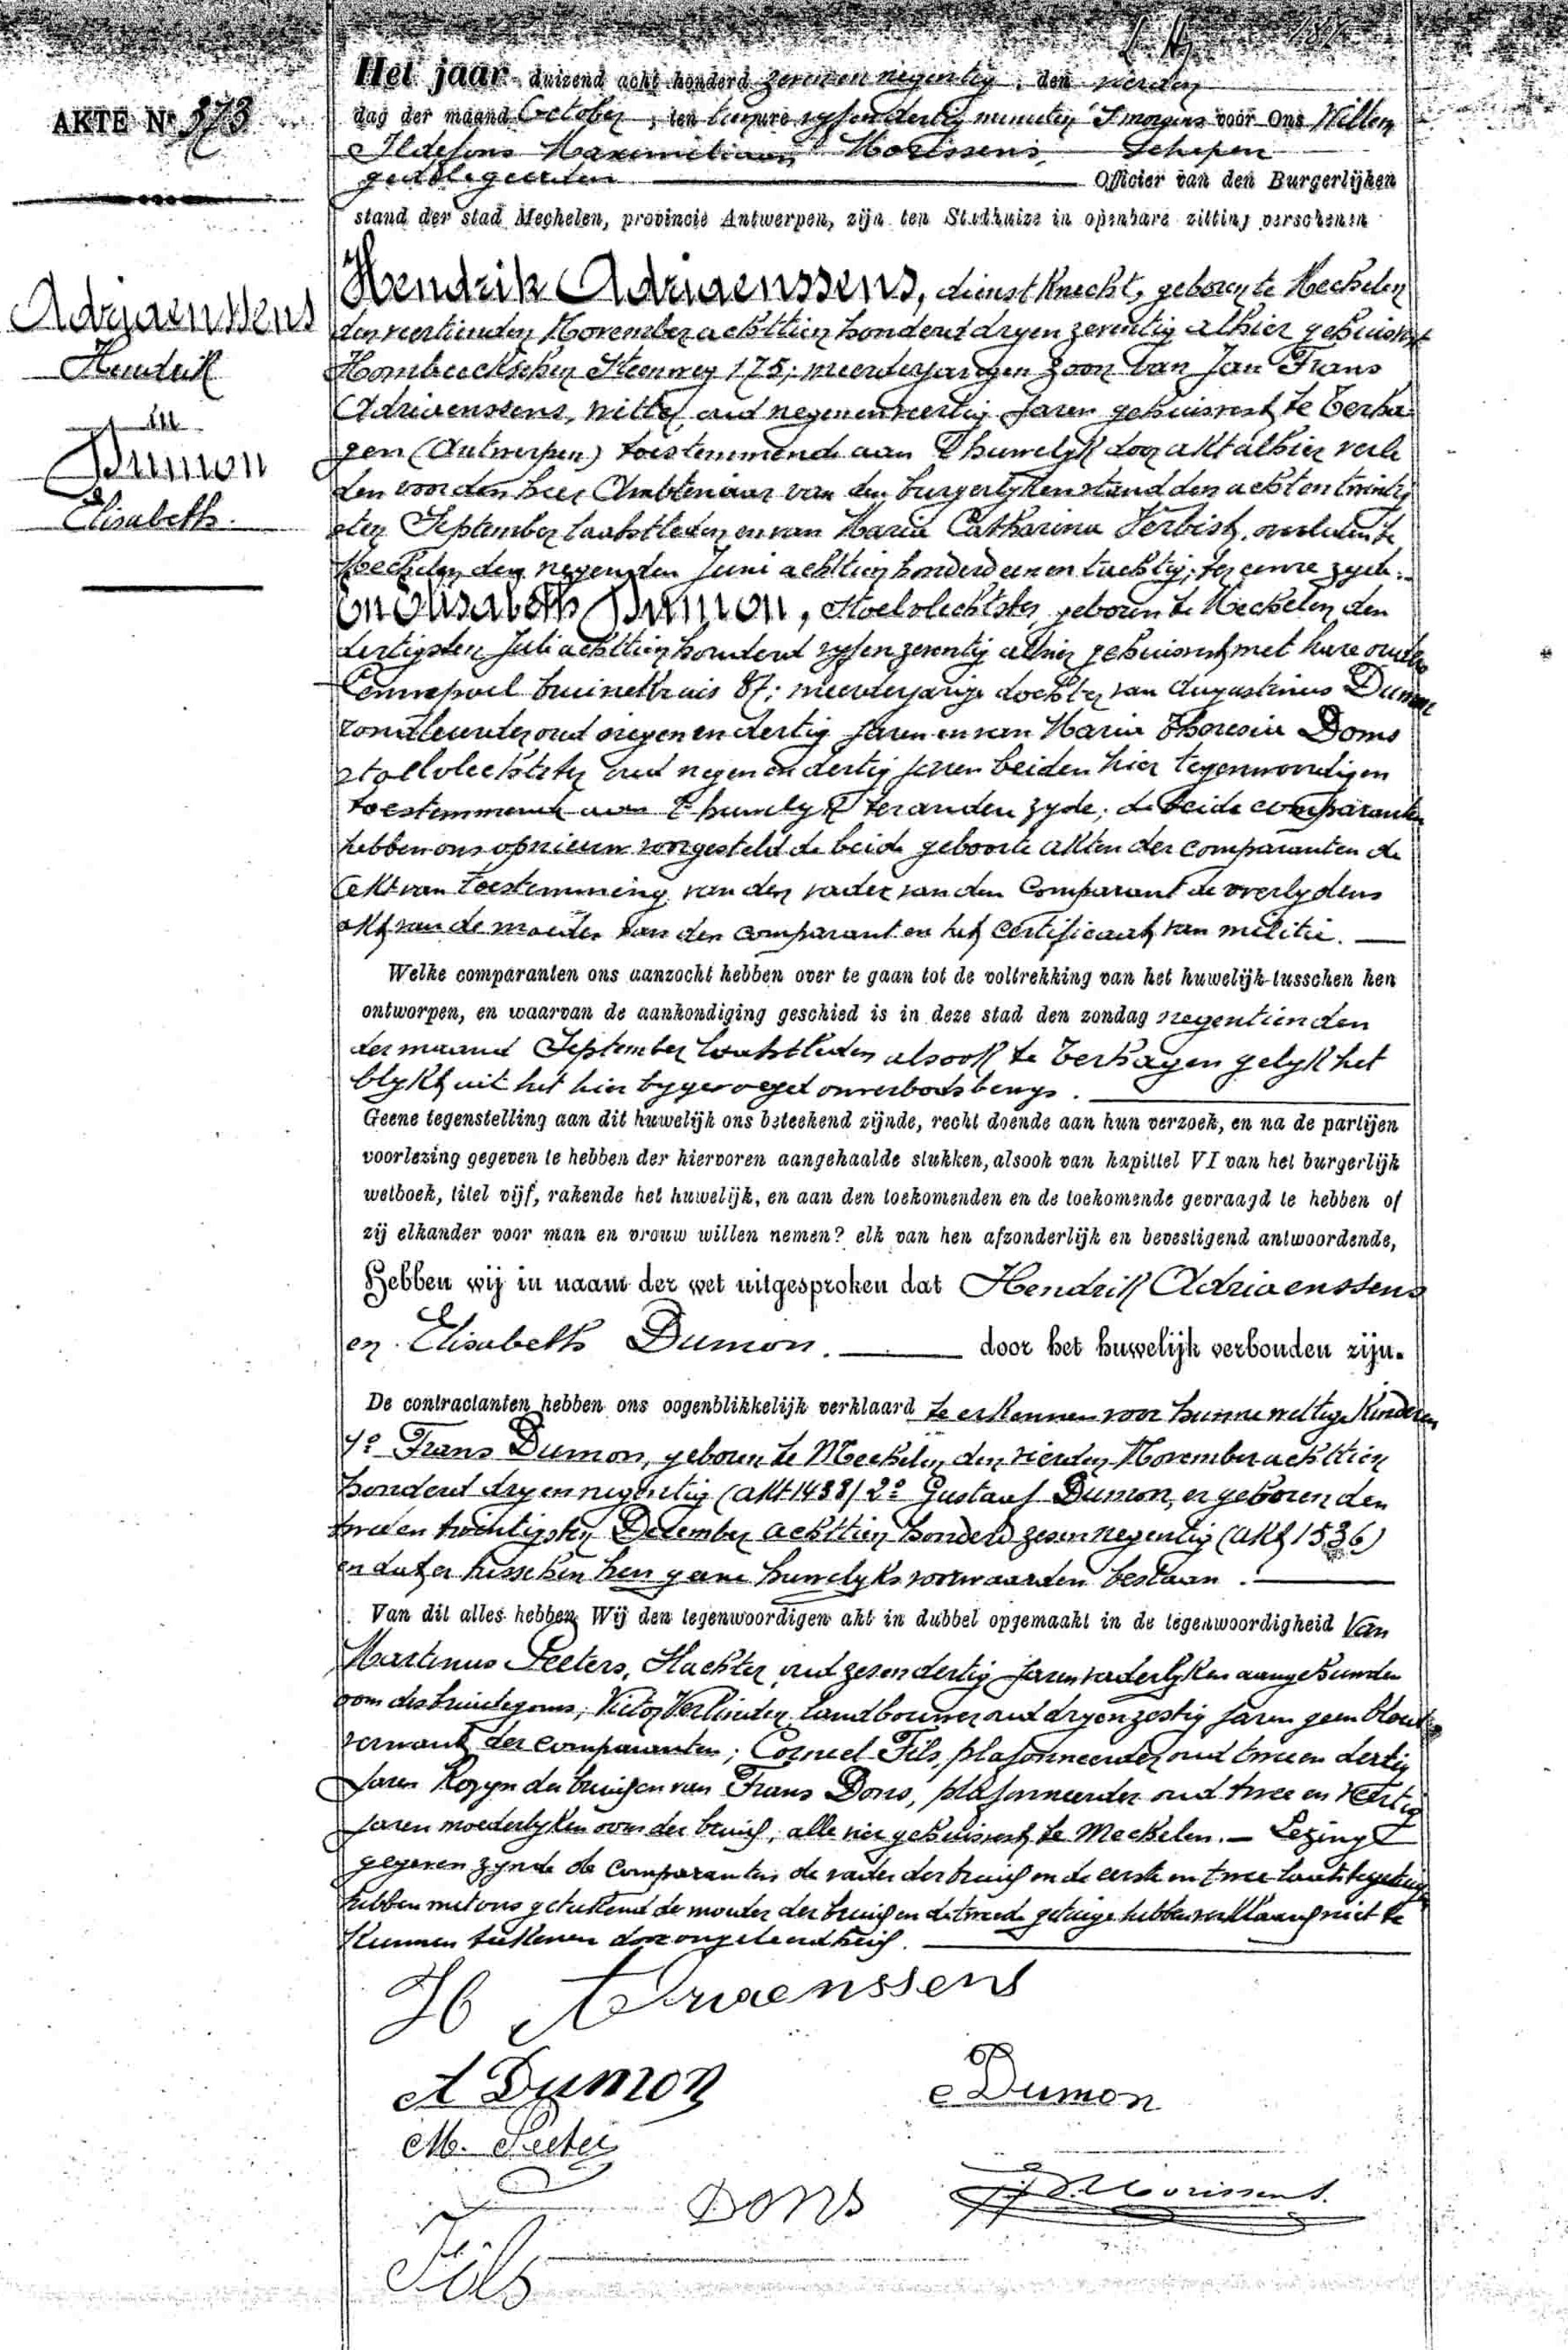 AKTE Nr 373
Adriaenssens
Hendrik
en
Dumon
Elisabeth.
Het jaar duizend acht honderd zeven en negentig, den vierden
dag der maand October, ten tien ure vyf en dertig minuten 's morgens voor Ons Willem
Ildefons Maximiliaan Morissens, Schepen
gedelegeerden Officier van den Burgerlijken
stand der stad Mechelen, provincie Antwerpen, zijn ten Stadhuize in openbare zitting verschenen
Hendrik Adriaenssens, dienstknecht, geboren te Mechelen
den veertienden November achttien honderd dry en zeventig alhier gehuisvest
Hombeeckschen Steenweg 175; meerderjarigen zoon van Jan Frans
Adriaenssens, witter, oud negen en veertig Jaren gehuisvest te Terha-
gen (Antwerpen) toestemmende aan 't huwelyk door akt alhier verle
den voor den heer Ambtenaar van den burgerlyken stand den acht en twintig
sten September laatstleden en van Maria Catharina Verbist, overleden te
Mechelen den negenden Juni achttien honderd een en tachtig; ter eenre zyde.
En Elisabeth Dumon, Stoelvlechtster, geboren te Mechelen den
dertigsten Juli achttien honderd vyf en zeventig alhier gehuisvest met hare ouders
bruinekruis 87; meerderjarige dochter van Augustinus Dumon
rondleurder oud negen en dertig Jaren en van Maria Theresia Doms
stoelvlechtster oud negen en dertig Jaren beiden hier tegenwoordigen
toestemmende aan 't huwelyk ter andere zyde; de beide comparanten
hebben ons opnieuw voorgesteld de beide geboorte akten der comparanten de
akt van toestemming van den vader van den Comparant de overlydens
akt van de moeder van den comparant en het certificaat van militie.
Welke comparanten ons aanzocht hebben over te gaan tot de voltrekking van het huwelijk tusschen hen
ontworpen, en waarvan de aankondiging geschied is in deze stad den zondag negentienden
der maand September laatstleden alsook te Terhagen gelyk het
blykt uit het hier bygevoegd onverbodsbewys.
Geene tegenstelling aan dit huwelijk ons beteekend zijnde, recht doende aan hun verzoek, en na de partijen
voorlezing gegeven te hebben der hiervoren aangehaalde stukken, alsook van kapittel VI van het burgerlijk
wetboek, titel vijf, rakende het huwelijk, en aan den toekomenden en de toekomende gevraagd te hebben of
zij elkander voor man en vrouw willen nemen? elk van hen afzonderlijk en bevestigend antwoordende,
Hebben wij in naam der wet uitgesproken dat Hendrik Adriaenssens
en Elisabeth Dumon. door het huwelijk verbonden zijn.
De contractanten hebben ons oogenblikkelijk verklaard te erkennen voor hunne wettige Kinderen
1º Frans Dumon, geboren te Mechelen den vierden November achttien
honderd dry en negentig (akt 1488) 2º Gustaaf Dumon, er geboren den
twee en twintigsten December achttien honderd zes en negentig (akt 1536)
en dat er tusschen hen geene huwelyks voorwaarden bestaan.
Van dit alles hebben Wij den tegenwoordigen akt in dubbel opgemaakt in de tegenwoordigheid van
Martinus Peeters, Slachter, oud zes en dertig Jaren vaderlyken aangehuwden
oom des bruidegoms; Victor Verlinden, landbouwer oud dry en zestig jaren geen bloed-
verwant der comparanten; Corneel Fils, plafonneerder oud twee en dertig
Jaren Kozyn der bruid en van Frans Dons, plafonneerder oud twee en veertig
Jaren moederlyken oom der bruid; alle vier gehuisvest te Mechelen. — Lezing
gegeven zynde de comparanten de vader der bruid en de eerste en twee laatste getuigen
hebben met ons geteekend de moeder der bruid en de tweede getuige hebben verklaard niet te
kunnen teekenen door ongeleerdheid.
H Adriaenssens
A Dumon
e Dumon
M. Peeters
Dons
Morissens.
Fils